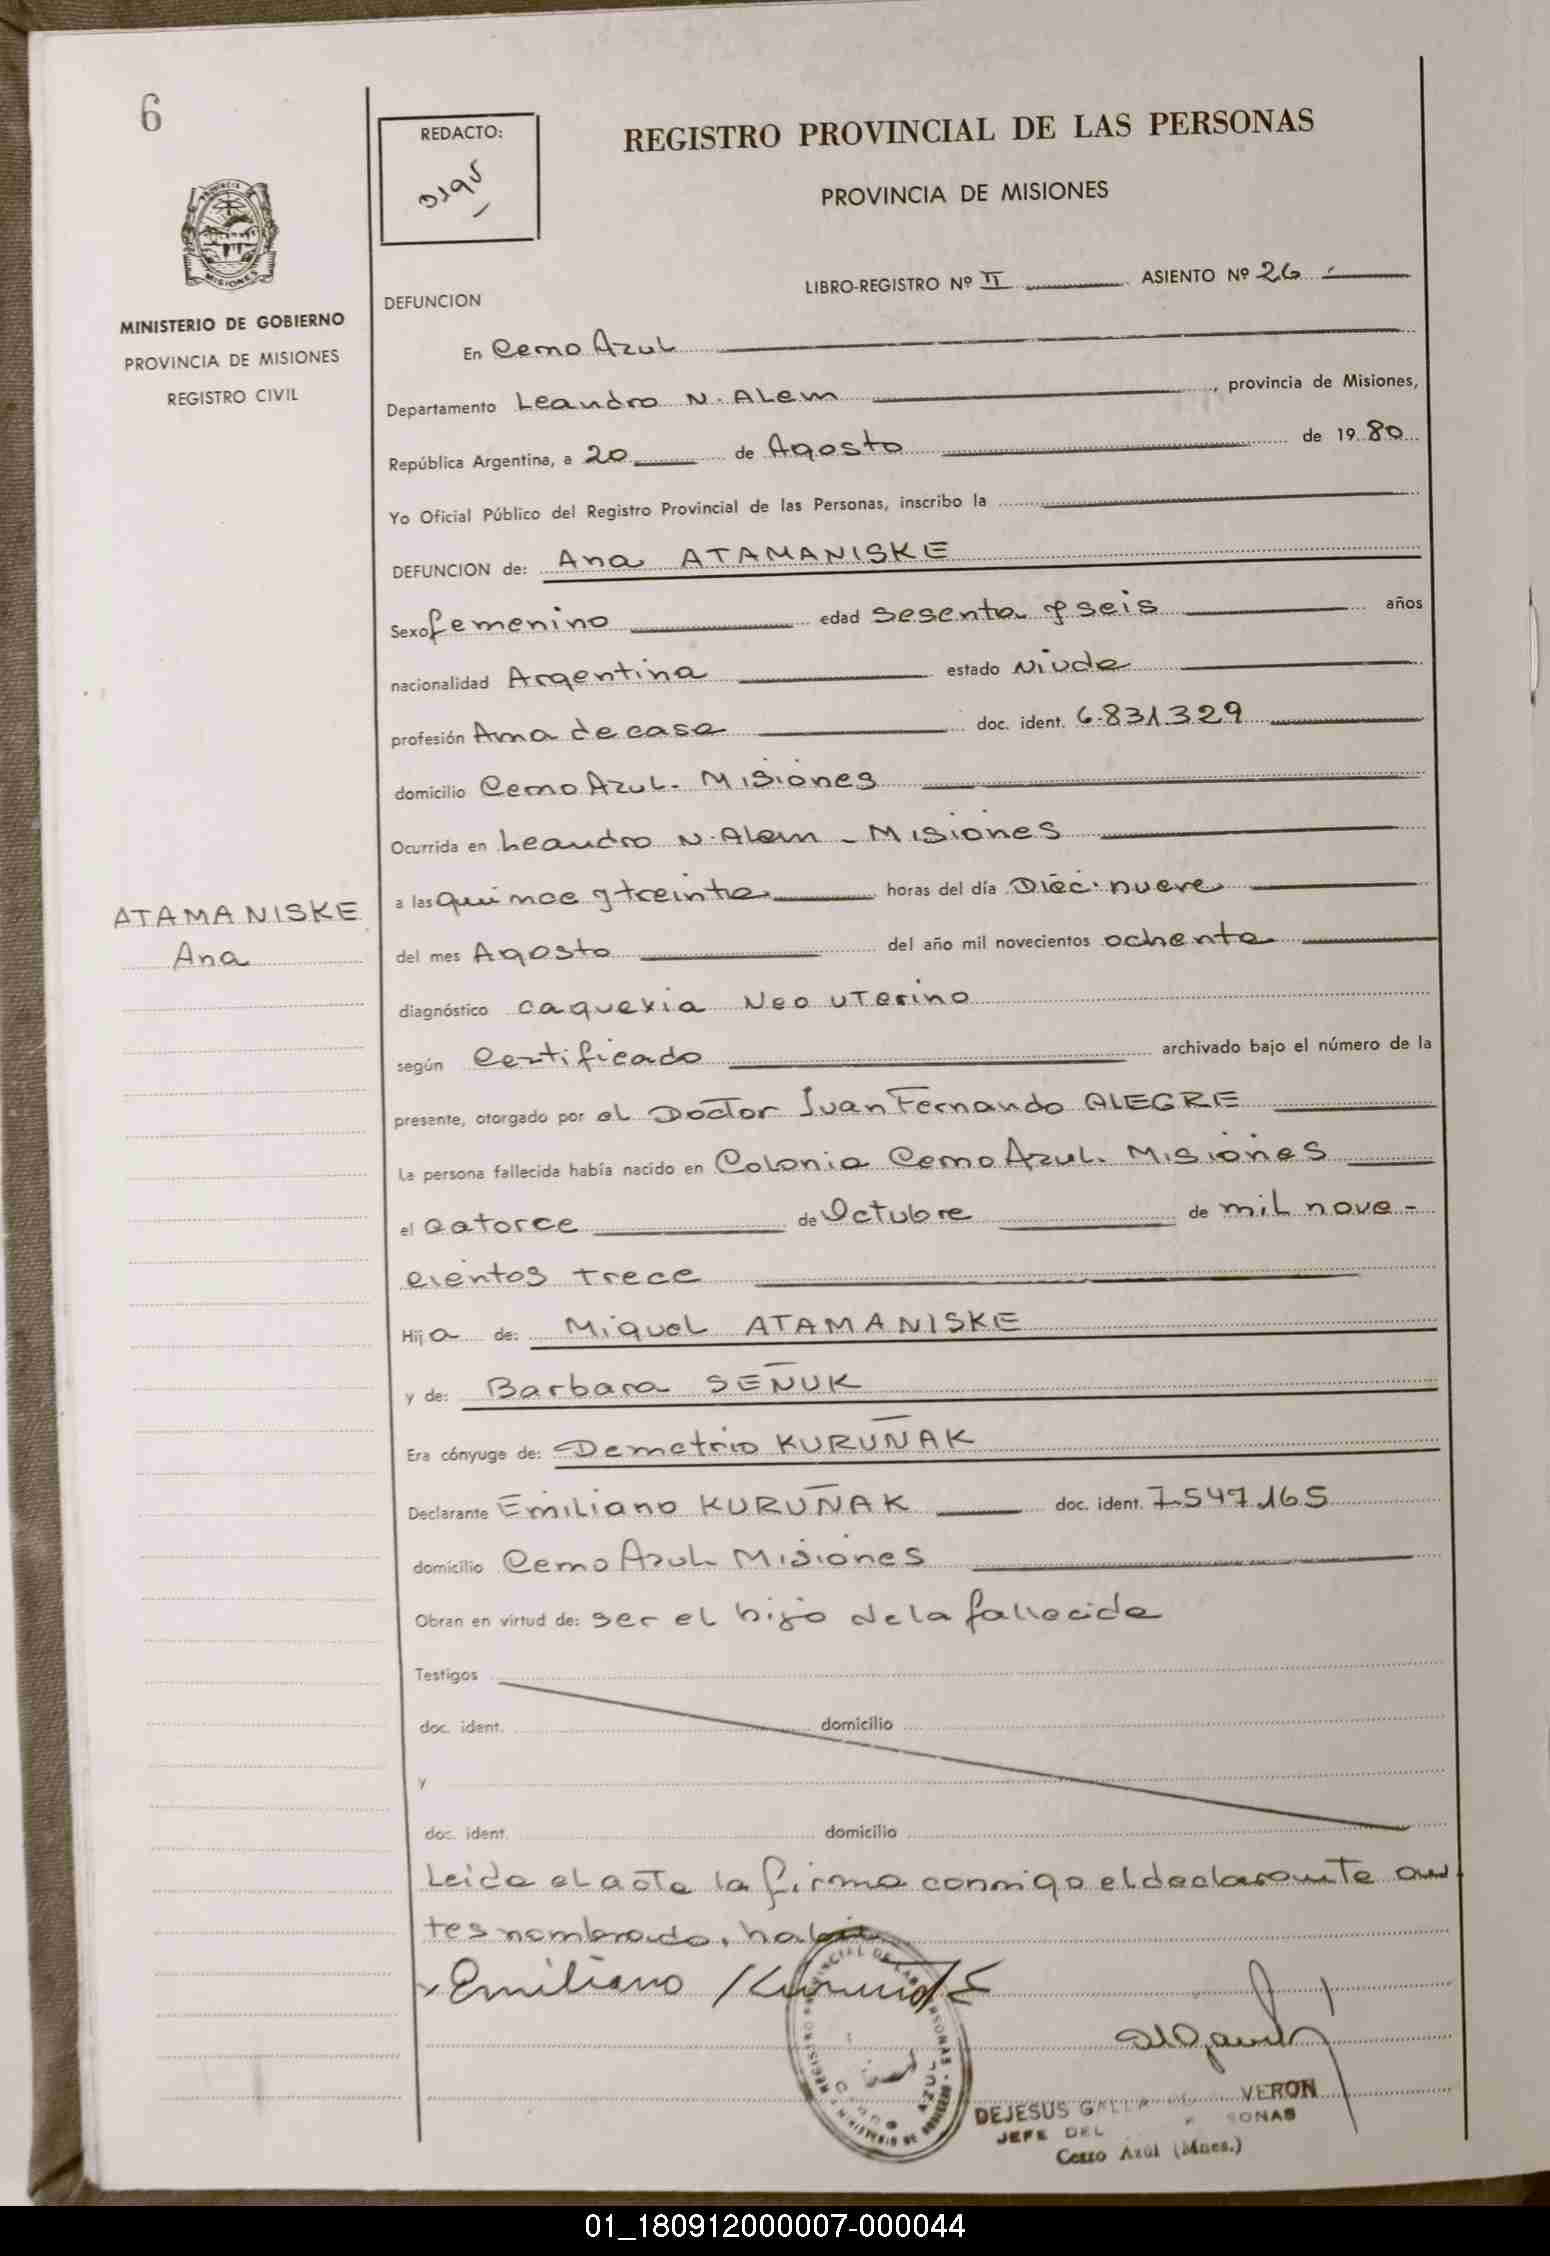 6
REDACTO:
REGISTRO PROVINCIAL DE LAS PERSONAS
PROVINCIA DE MISIONES
MISIONES
MINISTERIO DE GOBIERNO
PROVINCIA DE MISIONES
REGISTRO CIVIL
LIBRO-REGISTRO Nº II ASIENTO Nº 26
DEFUNCION
En Cerro Azul
Departamento Leandro N. Alem, provincia de Misiones,
República Argentina, a 20 de Agosto de 1980
Yo Oficial Público del Registro Provincial de las Personas, inscribo la
DEFUNCION de: Ana ATAMANISKE
Sexo femenino edad sesenta y seis años
nacionalidad Argentina estado Viuda
profesión Ama de casa doc. ident. 6.831.329
domicilio Cerro Azul. Misiones
Ocurrida en Leandro N. Alem - Misiones
a las quince y treinta horas del día Diecinueve
ATAMANISKE
Ana
del mes Agosto del año mil novecientos ochenta
diagnóstico caquexia Neo uterino
según Certificado archivado bajo el número de la
presente, otorgado por el Doctor Juan Fernando ALEGRE
La persona fallecida había nacido en Colonia Cerro Azul. Misiones
el catorce de Octubre de mil nove-
cientos trece
Hija de: Miguel ATAMANISKE
y de: Barbara SEÑUK
Era cónyuge de: Demetrio KURUÑAK
Declarante Emiliano KURUÑAK doc. ident. 7.547.165
domicilio Cerro Azul Misiones
Obran en virtud de: ser el hijo de la fallecida
Testigos
doc. ident. domicilio
y
doc. ident. domicilio
Leida el acta la firma conmigo el declarante an
tes nombrado,
Emiliano
REGISTRO PROVINCIAL DE LAS PERSONAS
AZUL
DEJESUS VERON
JEFE DEL
Cerro Azul (Mnes.)
01_180912000007-000044